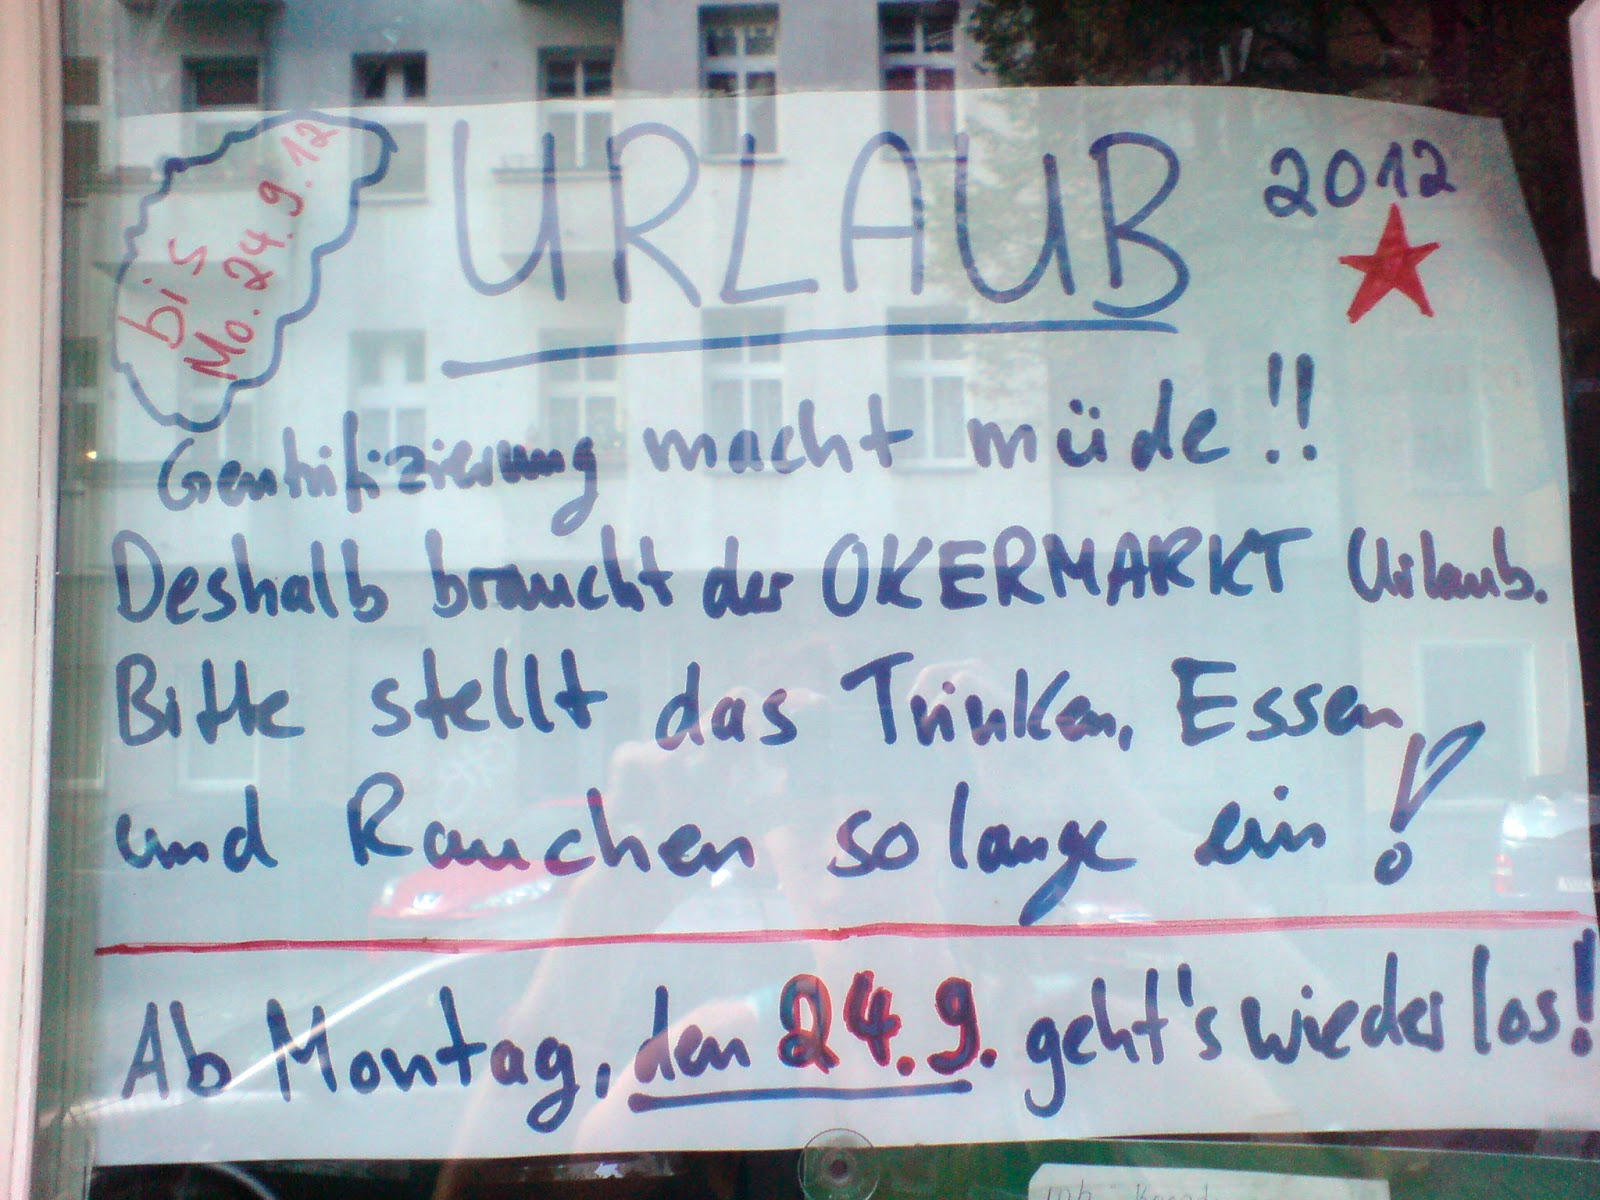 bis
Mo. 24.9.12
URLAUB
2012
Gentrifizierung macht müde!!
Deshalb braucht der OKERMARKT Urlaub.
Bitte stellt das Trinken, Essen
und Rauchen solange ein!
Ab Montag, den 24.9. geht's wieder los!